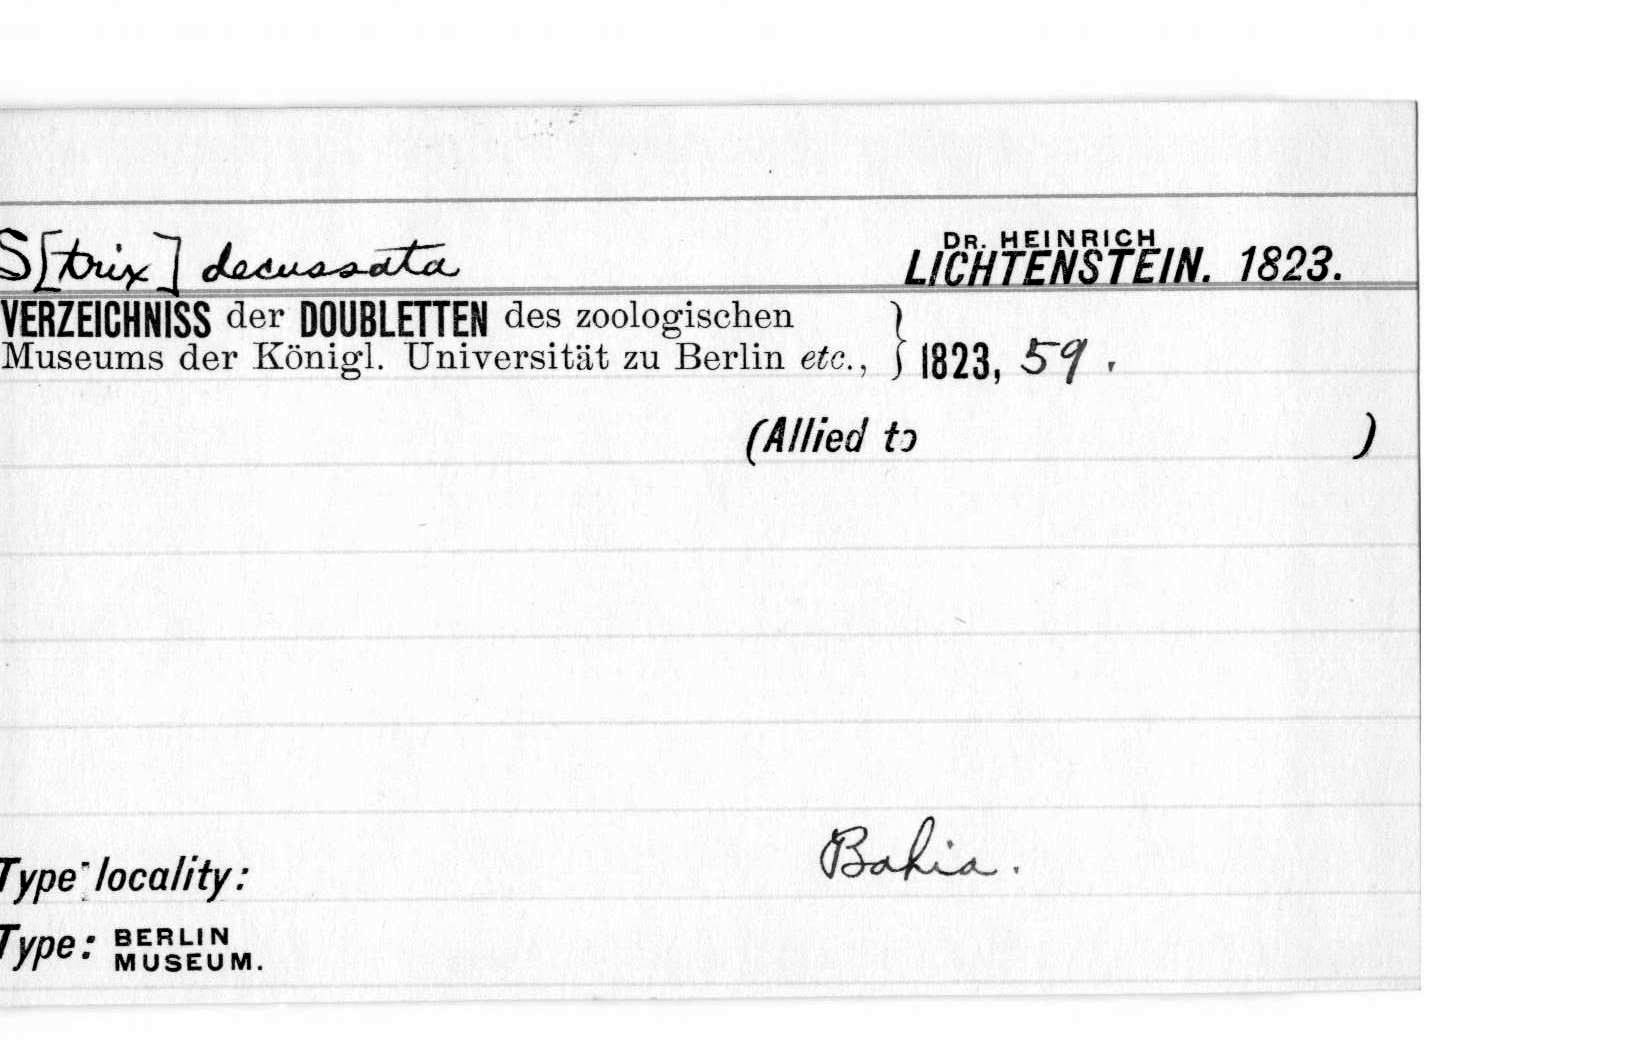 S[trix] decussata
DR. HEINRICH
LICHTENSTEIN. 1823.
VERZEICHNISS der DOUBLETTEN des zoologischen
Museums der Königl. Universität zu Berlin etc., } 1823, 59.
(Allied to )
Bahia.
Type locality:
Type: BERLIN
MUSEUM.